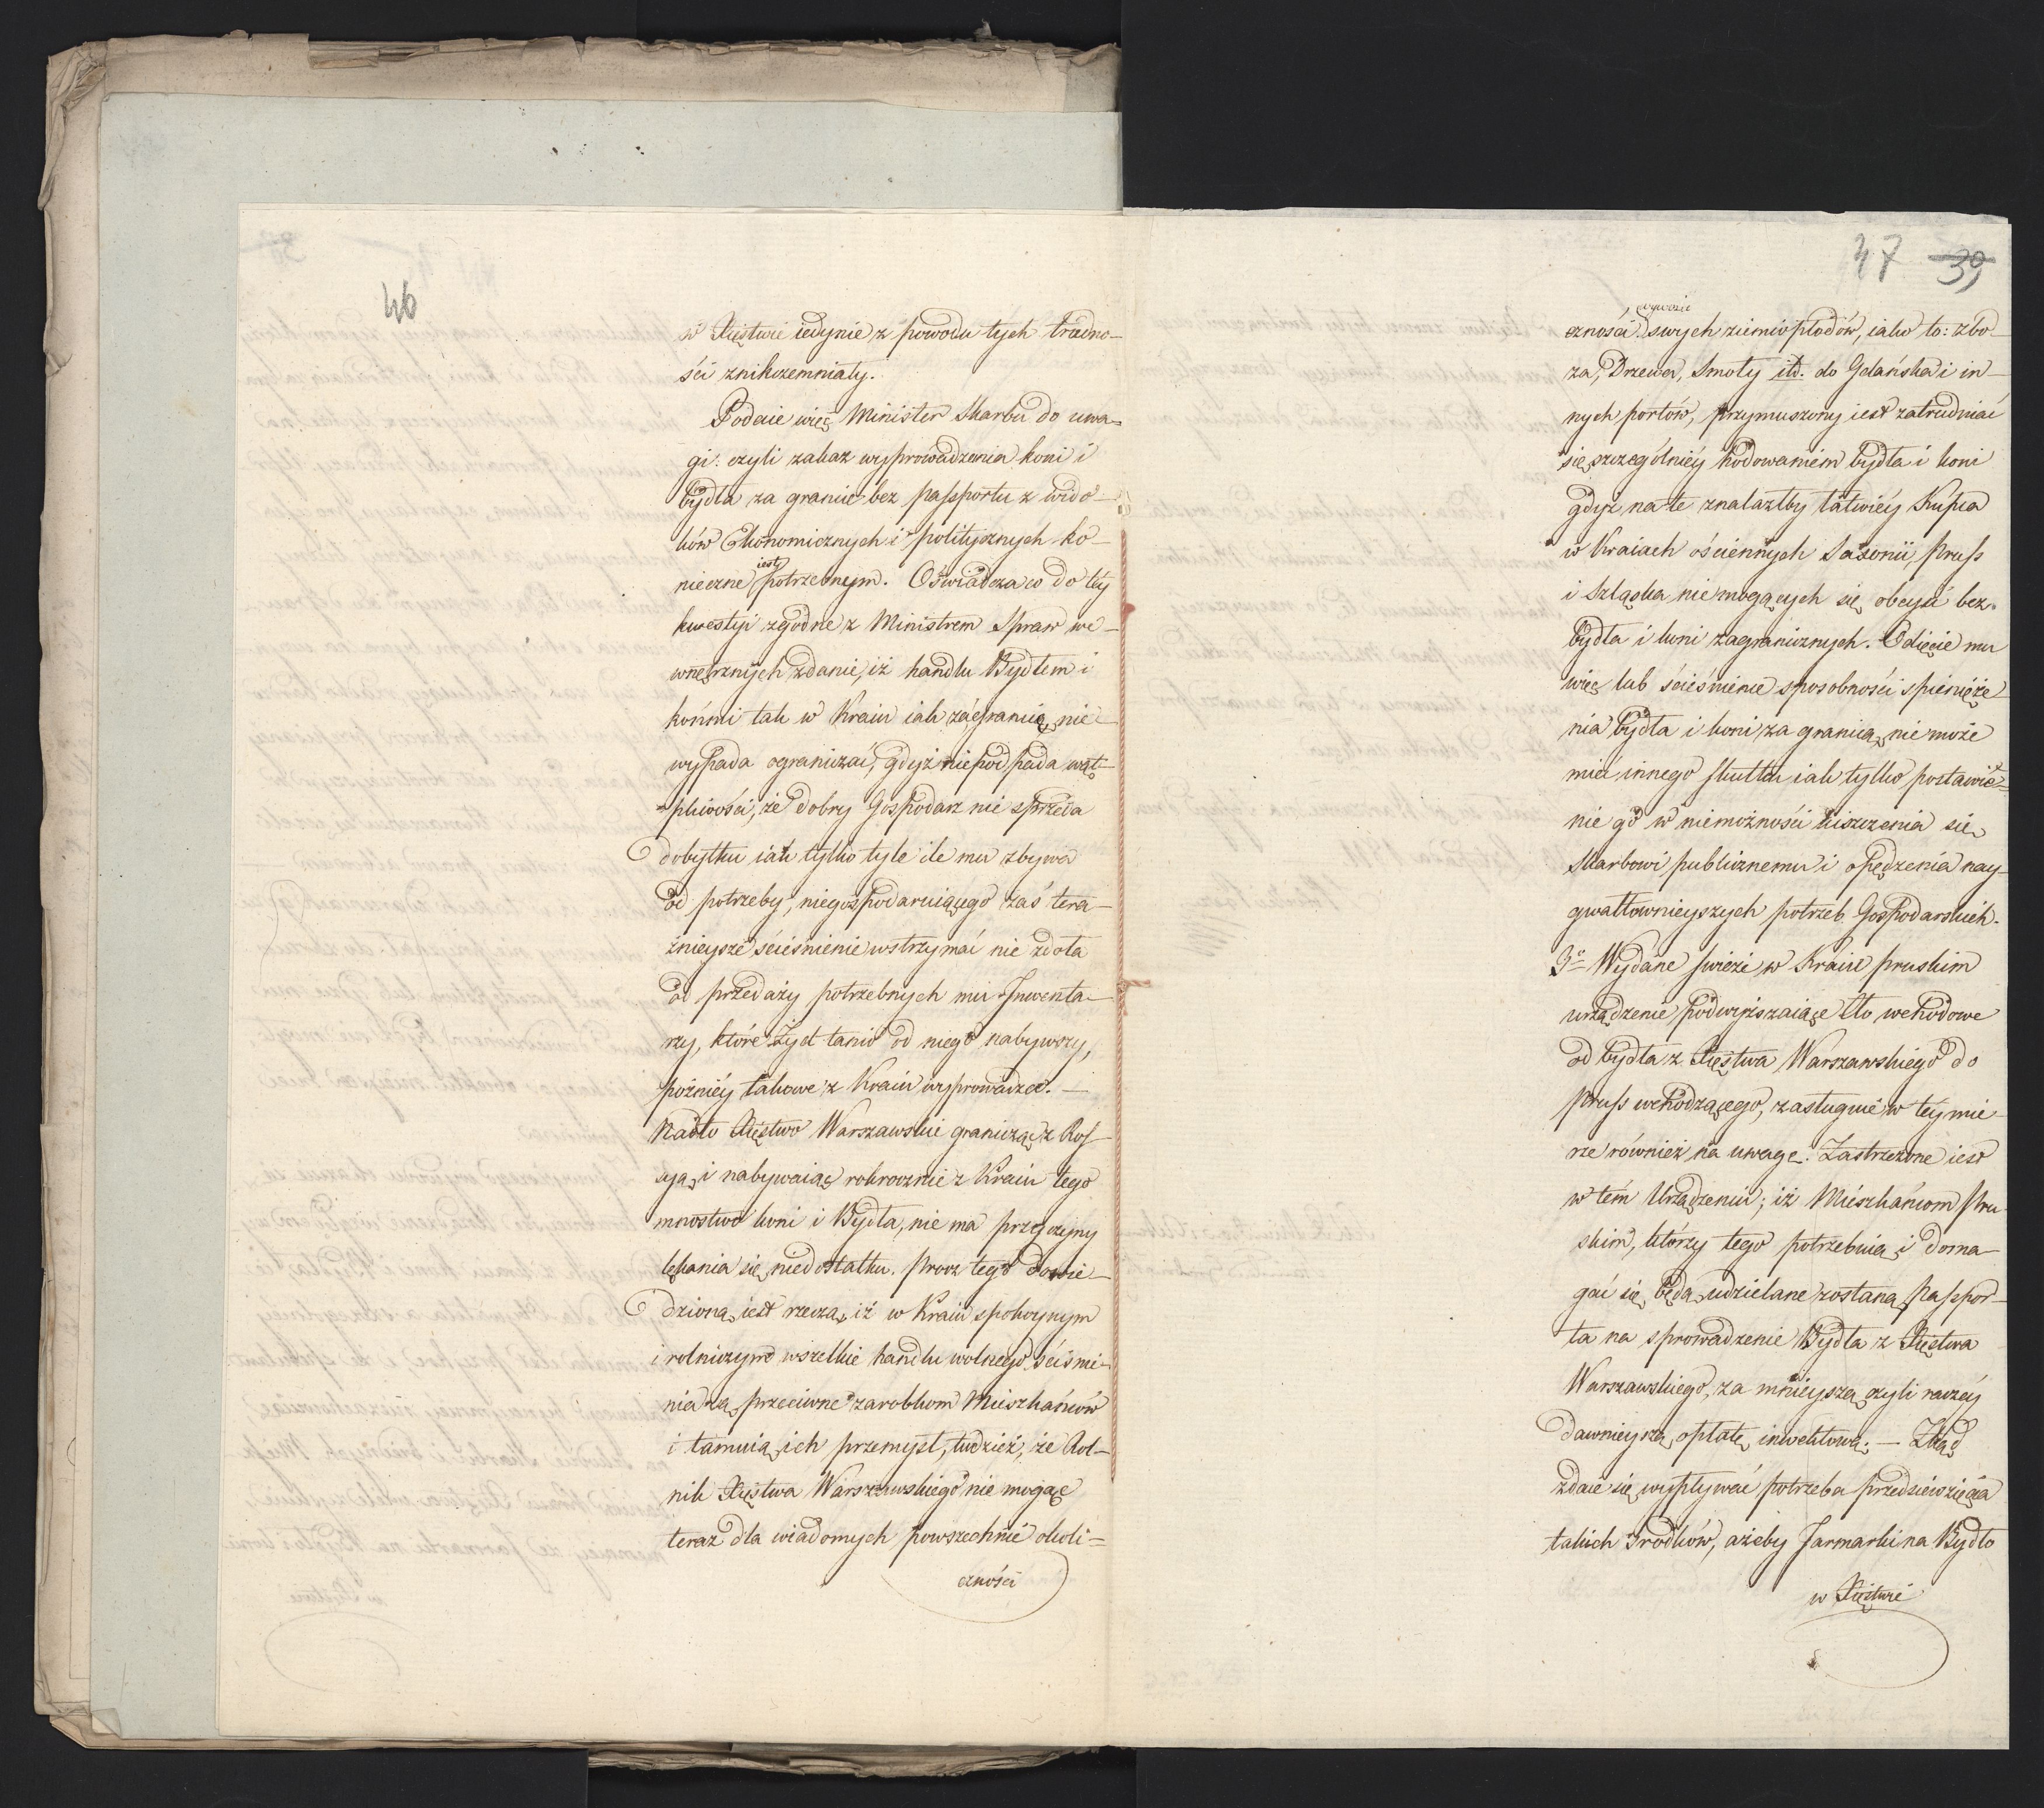 46
w Xięstwie iedynie z powodu tych trudno-
ści znikczemniały.
Podaie więc Minister Skarbu do uwa=
gi: czyli zakaz wyprowadzenia koni i
bydła za granicę bez passportu z wido-
ków Ekonomicznych i politycznych ko-
iest
niecznie potrzebnym. Oświadcza co do tey
kwestyi zgodne z Ministrem Spraw we-
wnętrznych zdanie, iż handlu Bydłem i
końmi tak w Kraiu iak zagranicę nie
wypada ograniczać, gdyż niepodpada wąt-
pliwości, że dobry Gospodarz nie sprzeda
dobytku iak tylko tyle ile mu zbywa
od potrzeby, niegospodaruiącego zaś tera-
źnieysze ścieśnienie wstrzymać nie zdoła
od przedaży potrzebnych mu Inwenta-
rzy, które Żyd tanio od niego nabywszy,
poźniéy takowe z Kraiu wyprowadza. —
Nadto Xięstwo Warszawskie granicząc z Ros-
syą, i nabywaiąc rokrocznie z Kraiu tego
mnostwo koni i Bydła, nie ma przyczyny
lękania się niedostatku. Procz tego dowie-
dzioną iest rzeczą, iż w Kraiu spokoynym
i rolniczym wszelkie handlu wolnego ścieśnie-
nia są przeciwne zarobkom Mieszkańców
i tamuią ich przemysł, tudzież, że Rol-
nik Xięstwa Warszawskiego nie mogąc
teraz dla wiadomych powszechnie okoli=
czności
47 39
wywozić
czności swych ziemiopłodów, iako to: zbo-
ża, Drzewa, Smoły itd. do Gdańska i in-
nych portów, przymuszony iest zatrudniać
się szczególniéy hodowaniem bydła i koni
gdyż na te znalazłby łatwiéy Kupca
w Kraiach ościennych Saxonii, Pruss
i Szląska nie mogących się obeyść bez
bydła i koni zagranicznych. Odięcie mu
więc lub ścieśnienie sposobności spienięże-
nia bydła i koni za granicą, nie może
mieć innego skutku iak tylko postawie=
nie go w niemożności uiszczenia się
Skarbowi publicznemu i opędzenia nay-
gwałtownieyszych potrzeb Gospodarskich.
3o Wydane swieżo w Kraiu pruskim
urządzenie podwyższaiące Cło wchodowe
od bydła z Xięstwa Warszawskiego do
Pruss wchodzącego, zasługuie w tey mie-
rze również na uwagę. Zastrzeżone iest
w tém Urządzeniu; iż Mieszkańcom Pru-
skim, którzy tego potrzebuią i doma-
gać się będą udzielane zostaną Passpor-
ta na sprowadzenie Bydła z Xięstwa
Warszawskiego, za mnieyszą czyli raczéy
dawnieyszą opłatę inwektową. — Ztąd
zdaie się wypływać potrzeba przedsiewzięcia
takich srodków, ażeby Jarmarki na Bydło
w Xięstwie